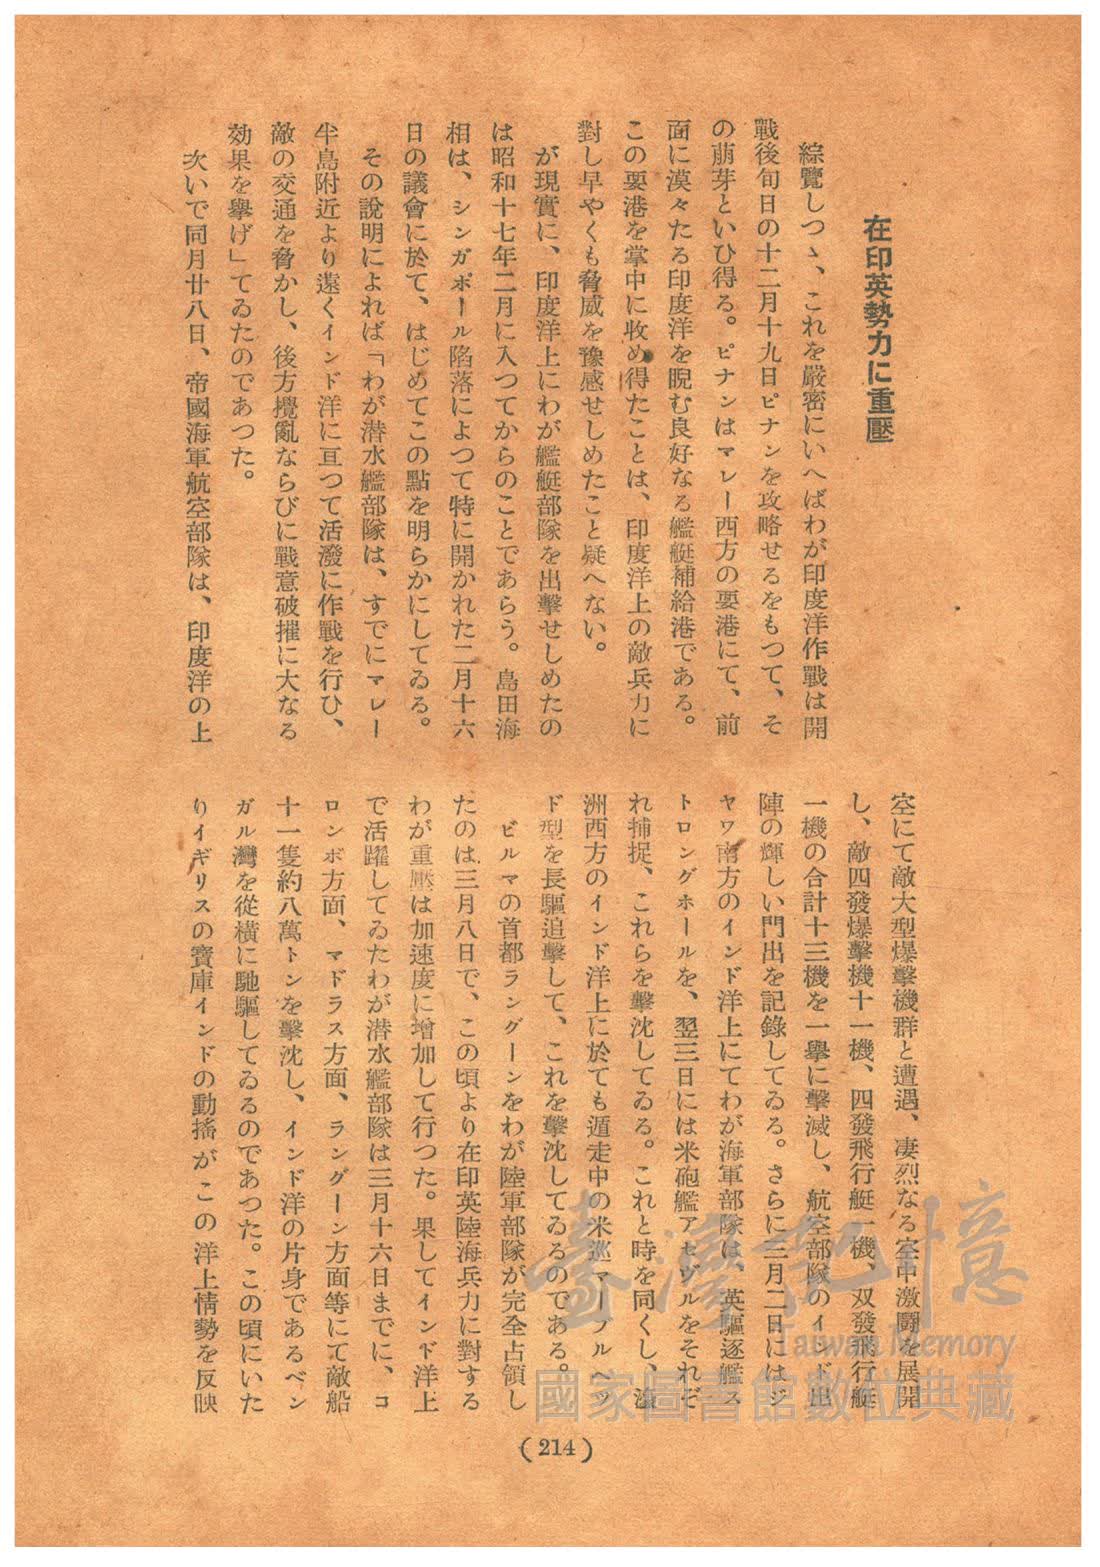 在印英勢力に重壓
綜覽しつゝ、これを嚴密にいへばわが印度洋作戰は開
戰後旬日の十二月十九日ピナンを攻略せるをもつて、そ
の萠芽といひ得る。ピナンはマレー西方の要港にて、前
面に漠々たる印度洋を睨む良好なる艦艇補給港である。
この要港を掌中に收め得たことは、印度洋上の敵兵力に
對し早やくも脅威を豫感せしめたこと疑へない。
が現實に、印度洋上にわが艦艇部隊を出擊せしめたの
は昭和十七年二月に入つてからのことであらう。島田海
相は、シンガポール陷落によつて特に開かれた二月十六
日の議會に於て、はじめてこの點を明らかにしてゐる。
その說明によれば「わが潜水艦部隊は、すでにマレー
半島附近より遠くインド洋に亘つて活潑に作戰を行ひ、
敵の交通を脅かし、後方攪亂ならびに戰意破摧に大なる
効果を擧げ」てゐたのであつた。
次いで同月廿八日、帝國海軍航空部隊は、印度洋の上
空にて敵大型爆擊機群と遭遇、凄烈なる空中激鬪を展開
し、敵四發爆擊機十一機、四發飛行艇一機、双發飛行艇
一機の合計十三機を一擧に擊滅し、航空部隊のインド出
陣の輝しい門出を記錄してゐる。さらに三月二日にはジ
ヤワ南方のインド洋上にてわが海軍部隊は、英驅逐艦ス
トロングホールを、翌三日には米砲艦アセヴルをそれぞ
れ捕捉、これらを擊沈してゐる。これと時を同くし、濠
洲西方のインド洋上に於ても遁走中の米巡マーブルヘツ
ド型を長驅追擊して、これを擊沈してゐるのである。
ビルマの首都ラングーンをわが陸軍部隊が完全占領し
たのは三月八日で、この頃より在印英陸海兵力に對する
わが重壓は加速度に增加して行つた。果してインド洋上
で活躍してゐたわが潜水艦部隊は三月十六日までに、コ
ロンボ方面、マドラス方面、ラングーン方面等にて敵船
十一隻約八萬トンを擊沈し、インド洋の片身であるベン
ガル灣を從橫に馳驅してゐるのであつた。この頃にいた
りイギリスの寶庫インドの動搖がこの洋上情勢を反映
(214)
臺灣記憶
Taiwan Memory
國家圖書館數位典藏